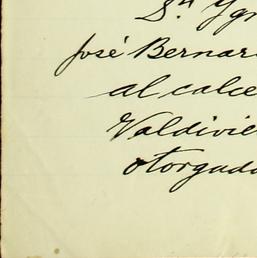 Sn Ygn
José Bernar
al calce
Valdivie
otorgada